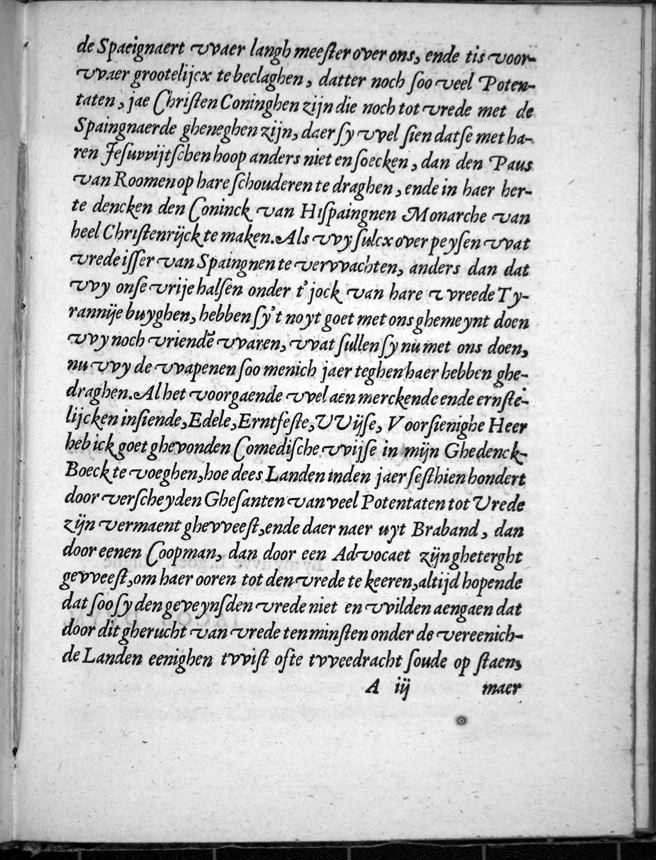 de Spaeignaert vvaer langh meester over ons, ende tis voor-
vvaer grootelijcx te beclaghen, datter noch soo veel Poten-
taten, jae Christen Coninghen zijn die noch tot vrede met de
Spaingnaerde gheneghen zijn, daer sy vvel sien datse met ha-
ren Jesuvvijtschen hoop anders niet en soecken, dan den Paus
van Roomen op hare schouderen te draghen, ende in haer her-
te dencken den Coninck van Hispaingnen Monarche van
heel Christenrijck te maken. Als vvy sulcx over peysen vvat
vrede isser van Spaingnen te vervvachten, anders dan dat
vvy onse vrije halsen onder t'jock van hare vvreede Ty-
rannije buyghen, hebben sy't noyt goet met ons ghemeynt doen
vvy noch vriendē vvaren, vvat sullen sy nu met ons doen,
nu vvy de vvapenen soo menich jaer teghen haer hebben ghe-
draghen. Al het voorgaende vvel aen merckende ende ernste-
lijcken insiende, Edele, Erntfeste, VVijse, Voorsienighe Heer
heb ick goet ghevonden Comedische vvijse in mijn Ghedenck-
Boeck te voeghen, hoe dees Landen inden jaer sesthien hondert
door verscheyden Ghesanten van veel Potentaten tot Vrede
zijn vermaent ghevveest, ende daer naer uyt Braband, dan
door eenen Coopman, dan door een Advocaet zijn gheterght
gevveest, om haer ooren tot den vrede te keeren, altijd hopende
dat soo sy den geveynsden vrede niet en vvilden aengaen dat
door dit gherucht van vrede ten minsten onder de vereenich-
de Landen eenighen tvvist ofte tvveedracht soude op staen,
A iij maer